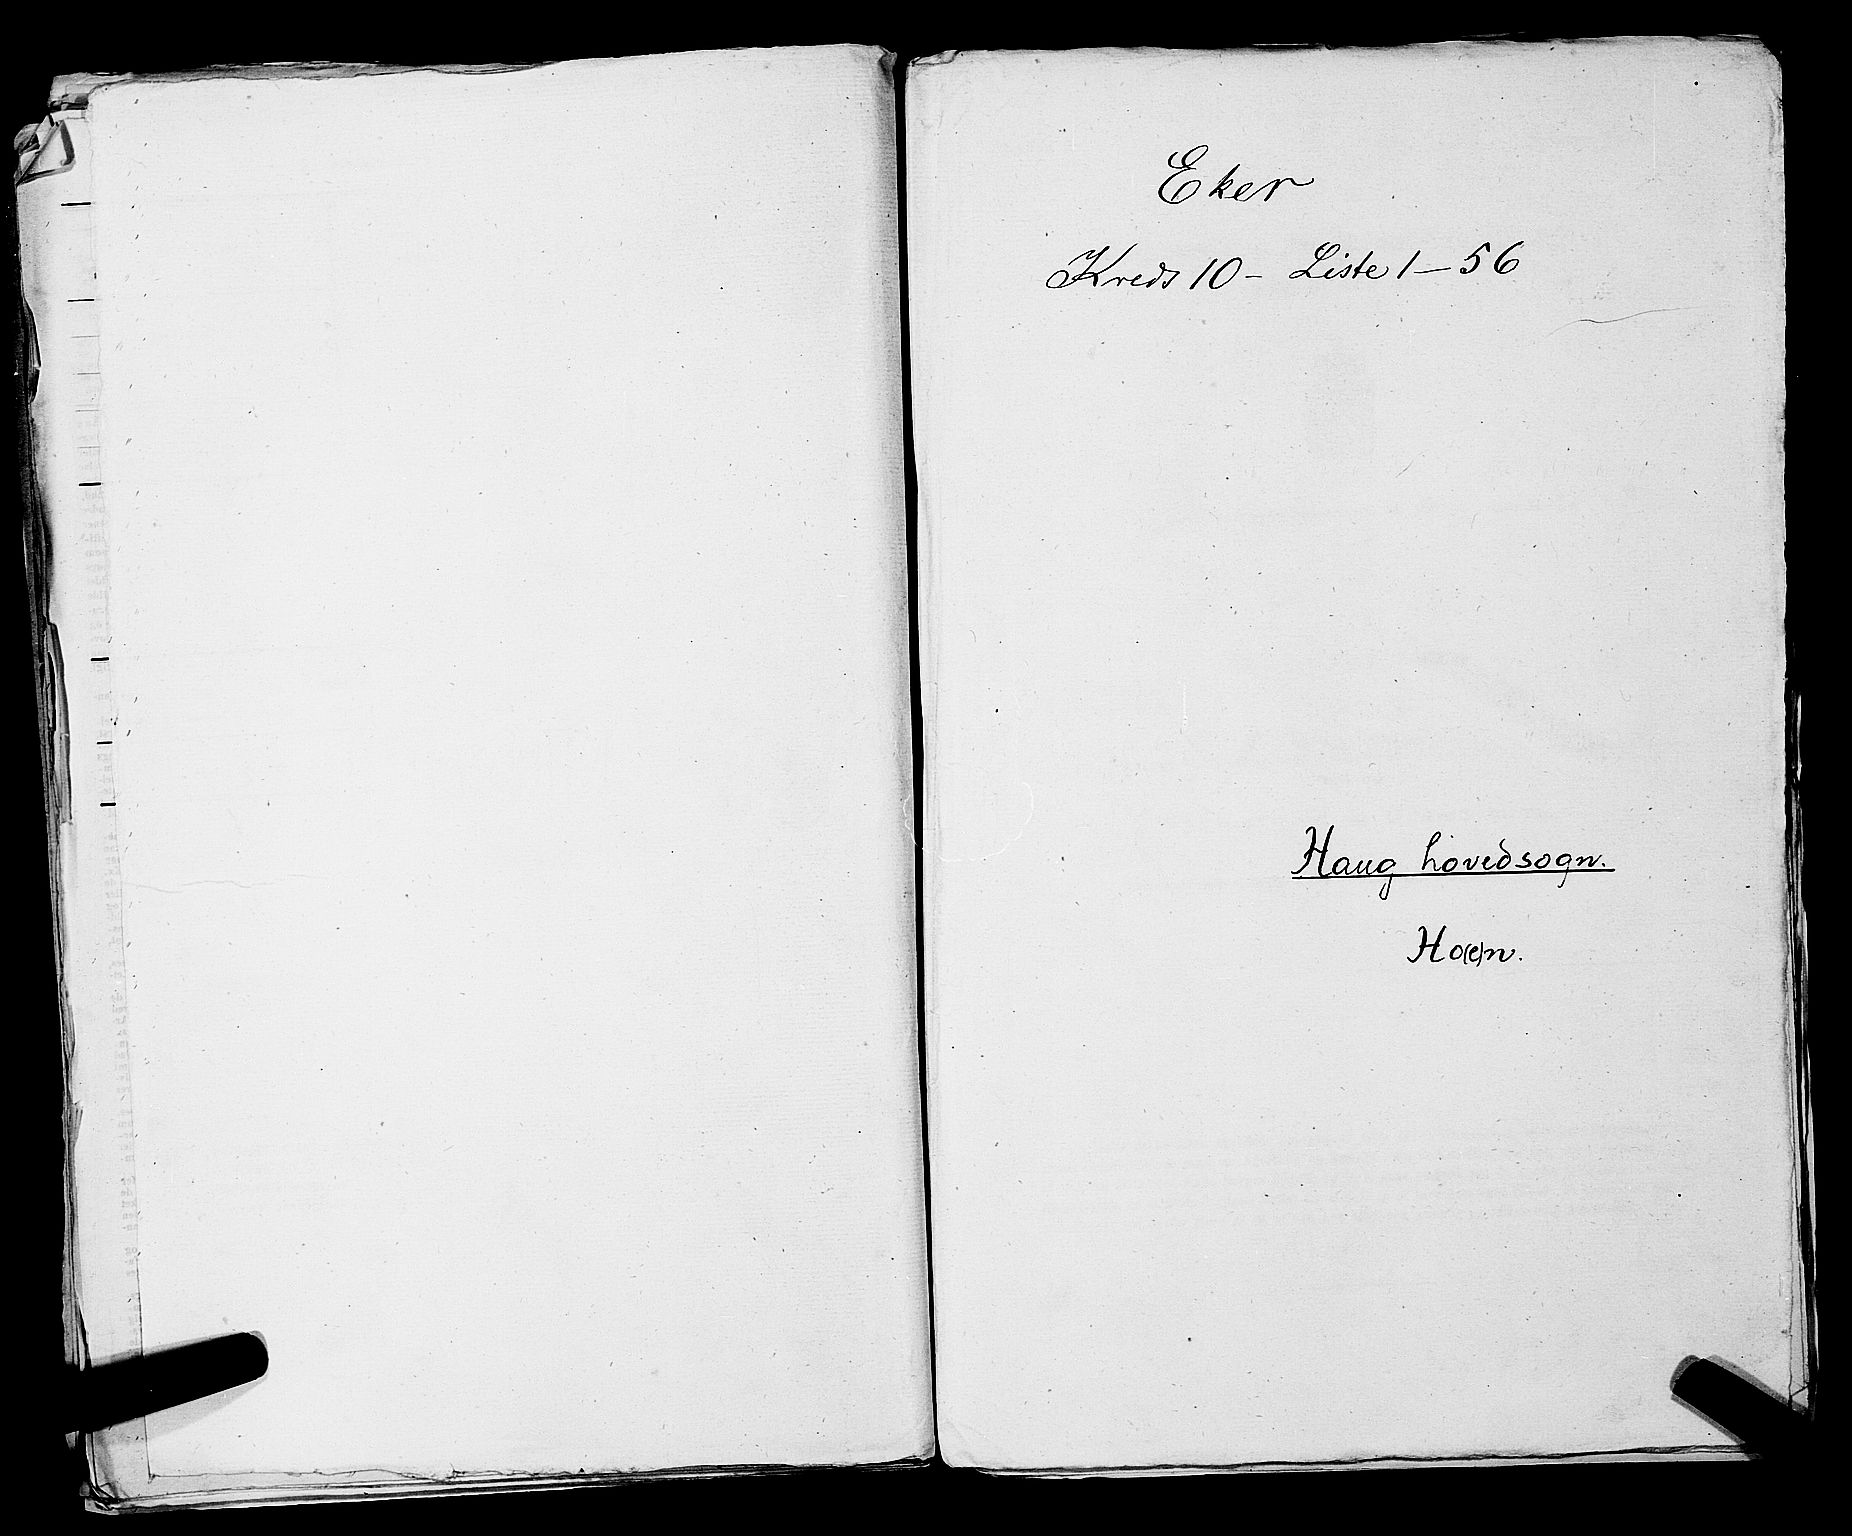 Eker
Kreds 10 - Liste 1 - 56
Haug hovedsogn.
Ho(e)n.